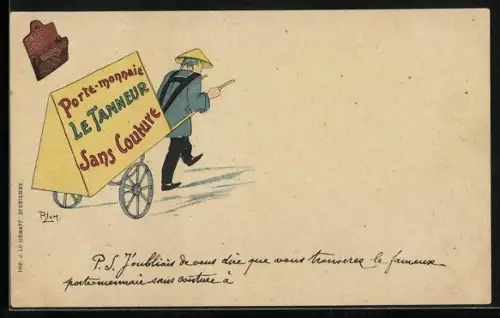 Porte-monnaie
LE TANNEUR
Sans Couture
P. S. J'oubliais de vous dire que vous trouverez le fameux
porte-monnaie sans couture à